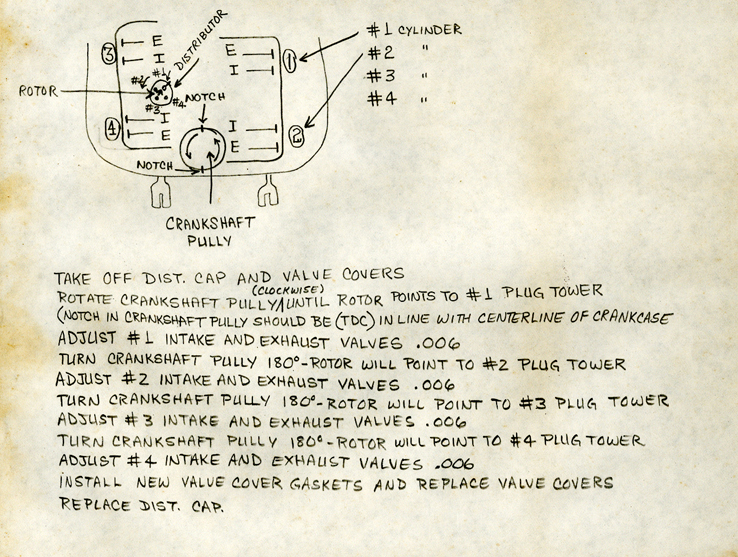 DISTRIBUTOR
#1 CYLINDER
#2 "
#3 "
#4 "
3 E
I
E 1
I
#2 #1
ROTOR
#3 #4 NOTCH
4 I
E
I 2
E
NOTCH
CRANKSHAFT
PULLY
TAKE OFF DIST. CAP AND VALVE COVERS
(CLOCKWISE)
ROTATE CRANKSHAFT PULLY UNTIL ROTOR POINTS TO #1 PLUG TOWER
(NOTCH IN CRANKSHAFT PULLY SHOULD BE (TDC) IN LINE WITH CENTERLINE OF CRANKCASE
ADJUST #1 INTAKE AND EXHAUST VALVES .006
TURN CRANKSHAFT PULLY 180°-ROTOR WILL POINT TO #2 PLUG TOWER
ADJUST #2 INTAKE AND EXHAUST VALVES .006
TURN CRANKSHAFT PULLY 180°-ROTOR WILL POINT TO #3 PLUG TOWER
ADJUST #3 INTAKE AND EXHAUST VALVES .006
TURN CRANKSHAFT PULLY 180°-ROTOR WILL POINT TO #4 PLUG TOWER
ADJUST #4 INTAKE AND EXHAUST VALVES .006
INSTALL NEW VALVE COVER GASKETS AND REPLACE VALVE COVERS
REPLACE DIST. CAP.